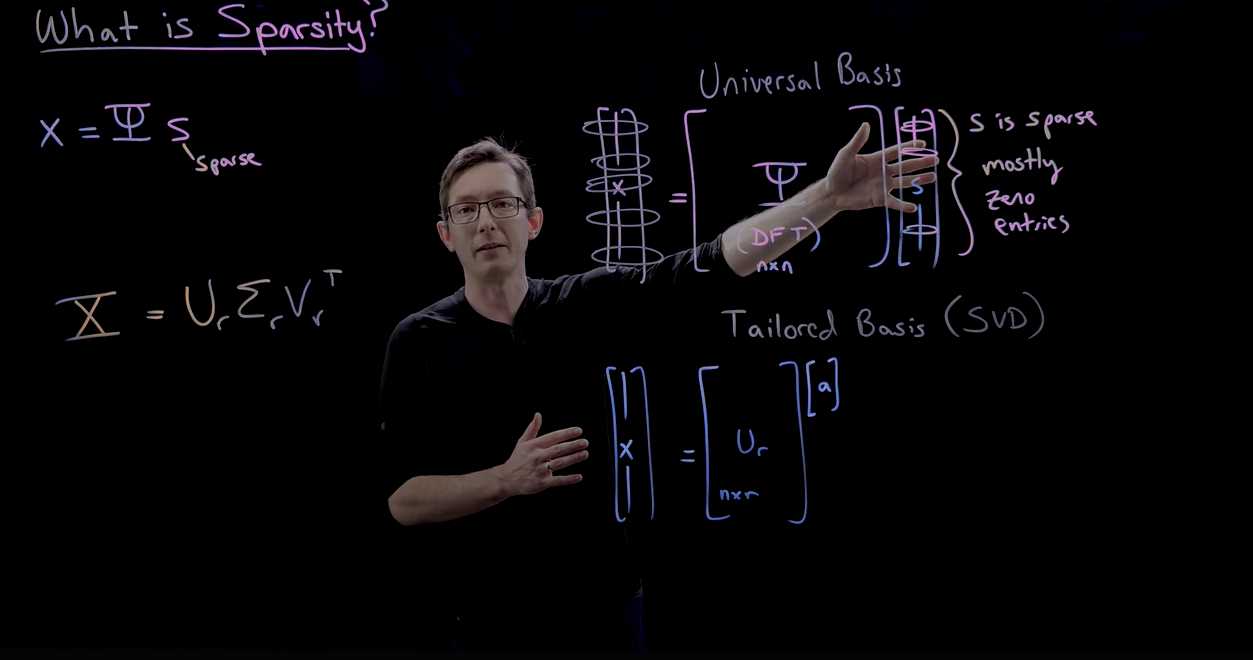 What is Sparsity?
x = Ψ s
sparse
X = UrΣrVrᵀ
Universal Basis
x = Ψ s
(DFT)
n×n
s is sparse
mostly
zero
entries
Tailored Basis (SVD)
x = Ur a
n×r